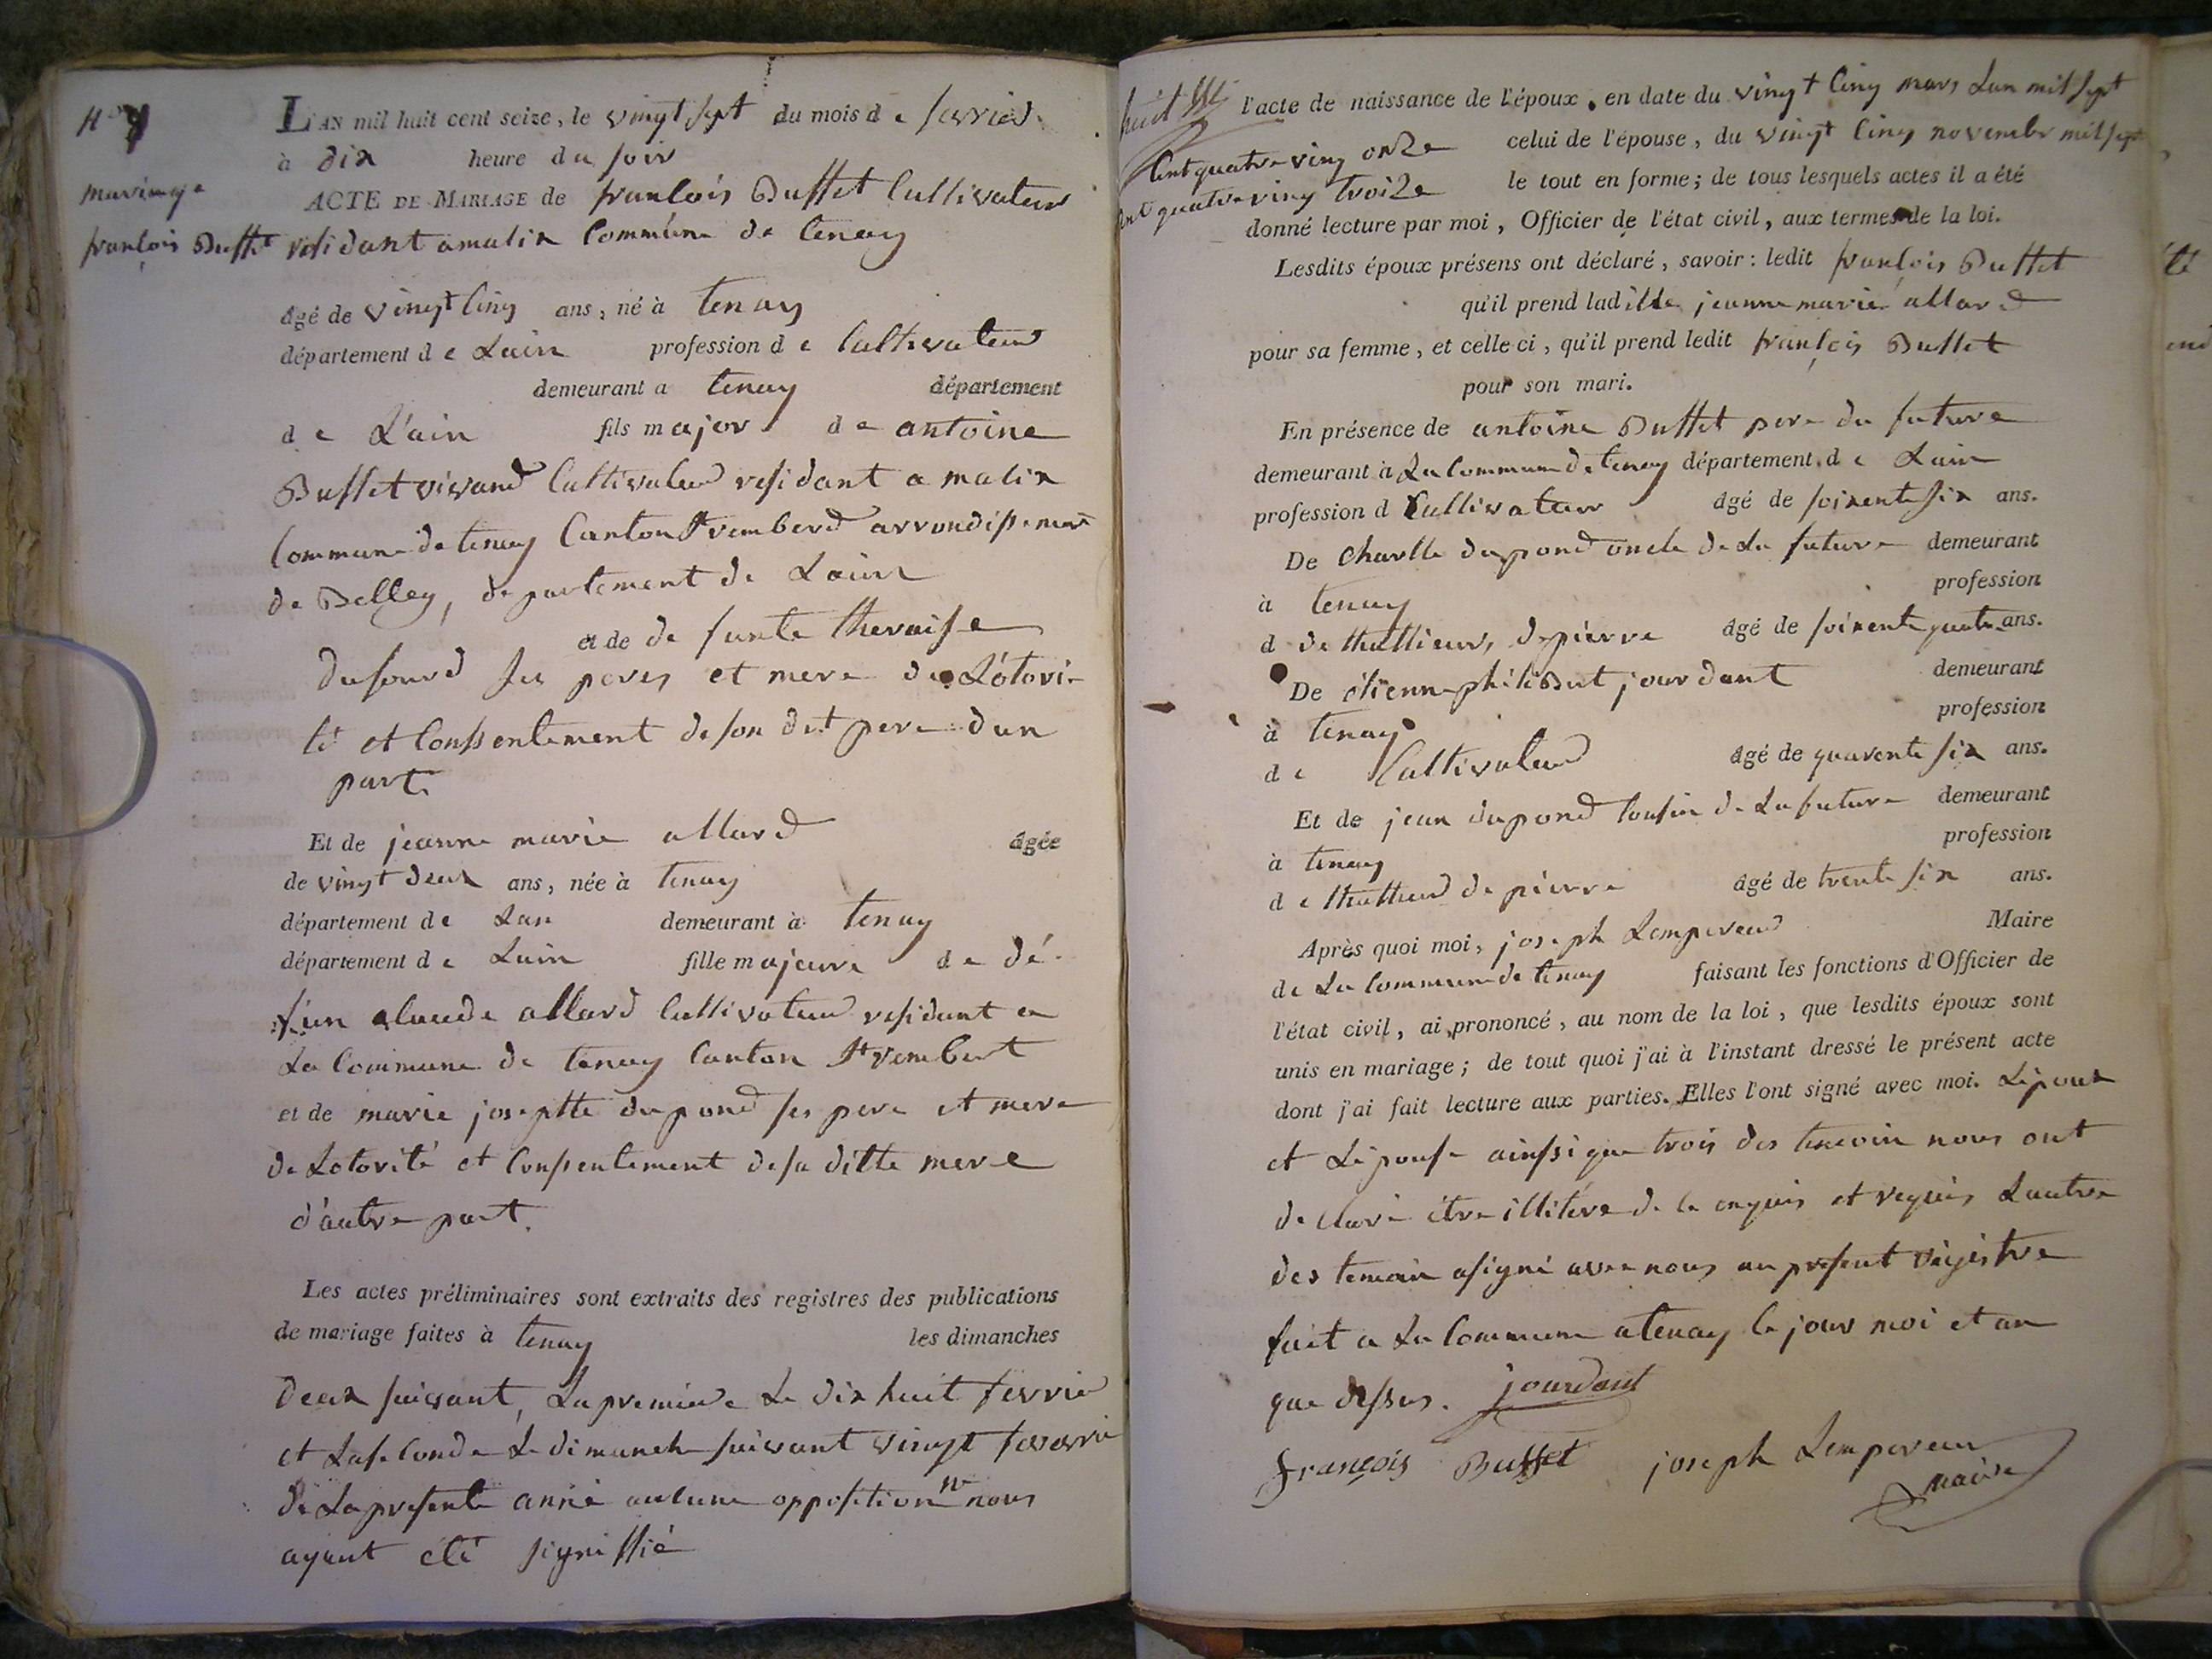 mariage
françois Buffet
L'AN mil huit cent seize, le vingt sept du mois de fevrier
à dix heure du soir
ACTE DE MARIAGE de françois Buffet Cultivateur
residant a malix Commune de tenay
âgé de vingt Cinq ans, né à tenay
département de Lain profession de Cultivateur
demeurant a tenay département
de L'ain fils major de antoine
Buffet vivand Cultivateur residant a malix
Commune de tenay Canton St remberd arrondissement
de Belley, departement de Lain
et de de funte theraise
Dufourd ses peres et mere de L'otori-
té et Conssentement de son dit pere d'un
part
Et de jeanne marie allard âgée
de vingt deux ans, née à tenay
département de Lan demeurant à tenay
département de Lain fille majeure de dé-
funt claude allard Cultivateur residant a
La Commune de tenay Canton St rembert
et de marie josephte dupond ses pere et mere
de Lotorité et Conssentement de sa ditte mere
d'autre part.
Les actes préliminaires sont extraits des registres des publications
de mariage faites à tenay les dimanches
Deux suivant, La premiere Le dix huit fevrie
et La seConde Le dimanch suivant vingt
de La presente année aucune opposition ne nous
ayant été signiffié
huit l'acte de naissance de l'époux, en date du vingt Cinq mars Lan mil sept
Cent quatre ving onze celui de l'épouse, du vingt Cinq novembr mil sept
Cent quatre ving troize le tout en forme; de tous lesquels actes il a été
donné lecture par moi, Officier de l'état civil, aux termes de la loi.
Lesdits époux présens ont déclaré, savoir: ledit françois Buffet
qu'il prend laditte jeanne marie allard
pour sa femme, et celle ci, qu'il prend ledit françois Buffet
pour son mari.
En présence de antoine Buffet pere du future
demeurant à La Commune de tenay département de Lain
profession d Cultivateur âgé de soixente six ans.
De Charlle dupond oncle de La future demeurant
à tenay profession
d de thallieur, de pierre âgé de soixente quatre ans.
De étienne philibert jourdant demeurant
à tenay profession
de Cultivateur âgé de quarente six ans.
Et de jean dupond Cousin de La future demeurant
à tenay profession
de thallieur de pierre âgé de trente six ans.
Après quoi moi, joseph Lempereur Maire
de La Commune de tenay faisant les fonctions d'Officier de
l'état civil, ai prononcé, au nom de la loi, que lesdits époux sont
unis en mariage; de tout quoi j'ai à l'instant dressé le présent acte
dont j'ai fait lecture aux parties. Elles l'ont signé avec moi. Lépoux
et Lépouse ainssi que trois des temoin nous ont
de claré être illitére de ce enquis et requis Lautre
des temoin a signé avec nous au present régistre
fait a La Commune a tenay le jour moi et an
que dessus. jourdant
françois Buffet joseph Lempereur
maire